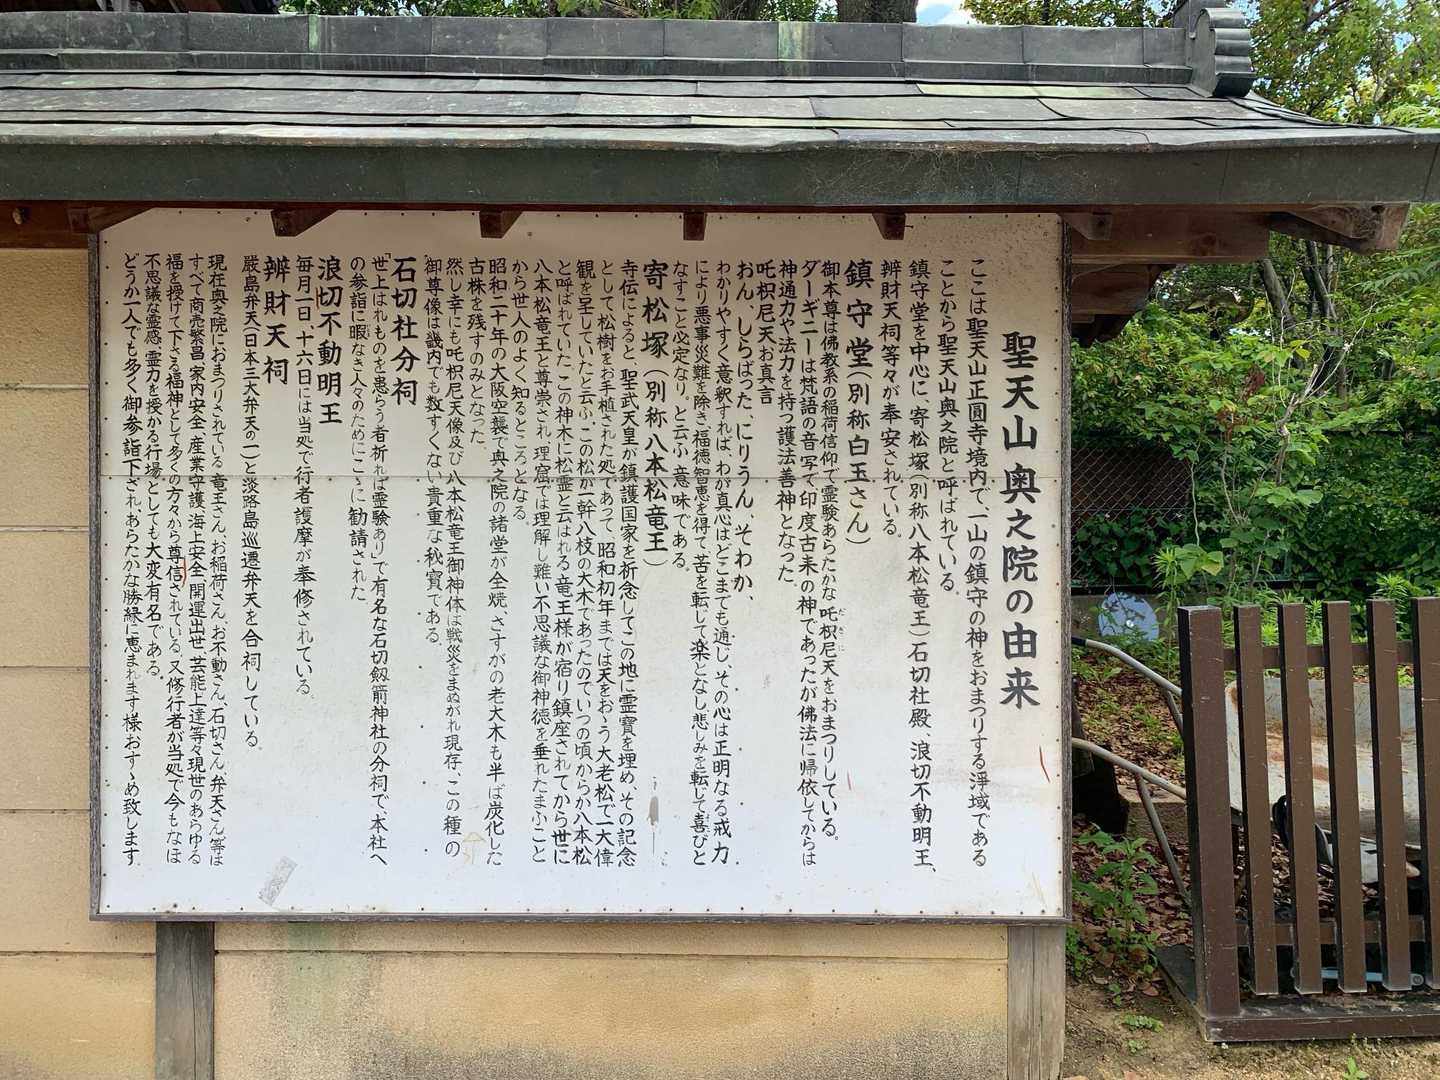 聖天山奥之院の由来
ここは聖天山正圓寺境内で、一山の鎮守の神をおまつりする淨域である
ことから聖天山奥之院と呼ばれている。
鎮守堂を中心に、寄松塚(別称八本松竜王)石切社殿、浪切不動明王、
辨財天祠等々が奉安されている。
鎮守堂(別称白玉さん)
御本尊は佛教系の稲荷信仰で霊験あらたかな吒枳尼天をおまつりしている。
ダーギニーは梵語の音写で印度古来の神であったが佛法に帰依してからは
神通力や法力を持つ護法善神となった。
吒枳尼天お真言
おん、しらばった、にりうん、そわか、
わかりやすく意釈すれば、わが真心はどこまでも通し、その心は正明なる戒力
により悪事災難を除き、福徳智恵を得て、苦を転じて楽となし悲しみを転じて喜びと
なすこと必定なり。と云ふ意味である。
寄松塚(別称八本松竜王)
寺伝によると、聖武天皇が鎮護国家を祈念してこの地に霊寶を埋め、その記念
として松樹をお手植された処であって、昭和初年までは天をおゝう大老松で一大偉
観を呈していたと云ふ、この松が一幹八枝の大木であったのでいつの頃からか八本松
と呼ばれていた、この神木に松霊と云はれる竜王様が宿り鎮座されてから世に
八本松竜王と尊崇され、理窟では理解し難い不思議な御神徳を垂れたまふこと
から世人のよく知るところとなる。
昭和二十年の大阪空襲で奥之院の諸堂が全焼、さすがの老大木も半ば炭化した
古株を残すのみとなった
然し幸にも吒枳尼天像及び八本松竜王御神体は戦災をまぬがれ現存、この種の
御尊像は畿内でも数すくない貴重な秘寶である。
石切社分祠
「世上はれものを患らう者祈れば霊験あり」で有名な石切劔箭神社の分祠で、本社へ
の参詣に暇なき人々のためにこゝに勧請された
浪切不動明王
毎月一日、十六日には当処で行者護摩が奉修されている。
辨財天祠
嚴島弁天(日本三大弁天の一)と淡路島巡遷弁天を合祠している。
現在奥之院におまつりされている竜王さん、お稲荷さん、お不動さん、石切さん弁天さん等は
すべて商売繁昌、家内安全、産業守護、海上安全、開運出世、芸能上達等々現世のあらゆる
福を授けて下さる福神として多くの方々から尊信されている、又修行者が当処で今もなほ
不思議な霊感、霊力を授かる行場としても大変有名である。
どうか一人でも多く御参詣下され、あらたかな勝縁に恵まれます様おすゝめ致します